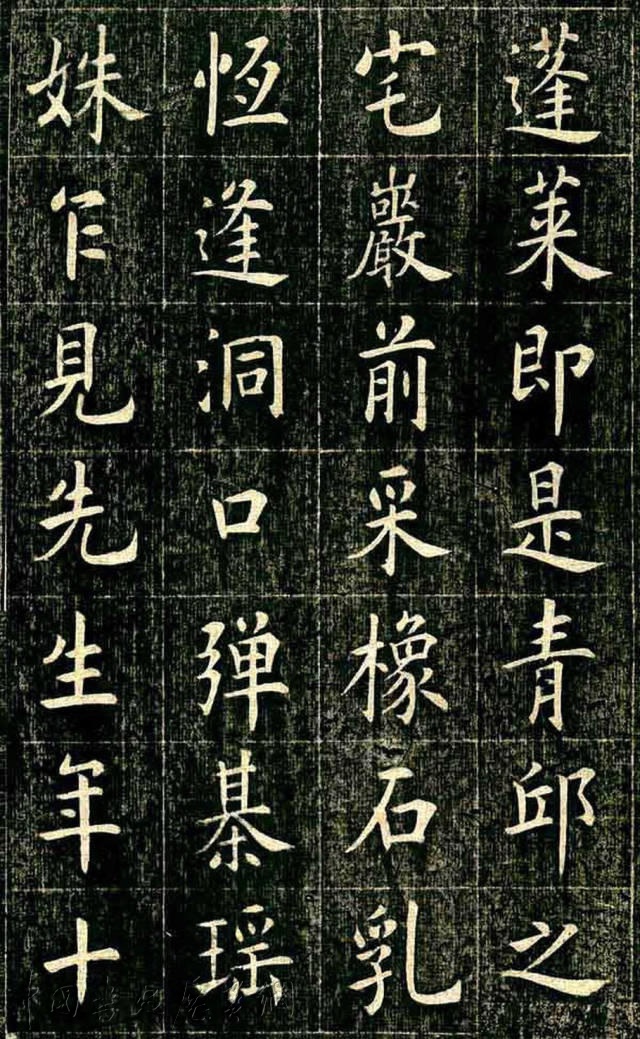 蓬萊即是青邱之
宅巖前采橡石乳
恆逢洞口弾棊瑶
姝乍見先生年十